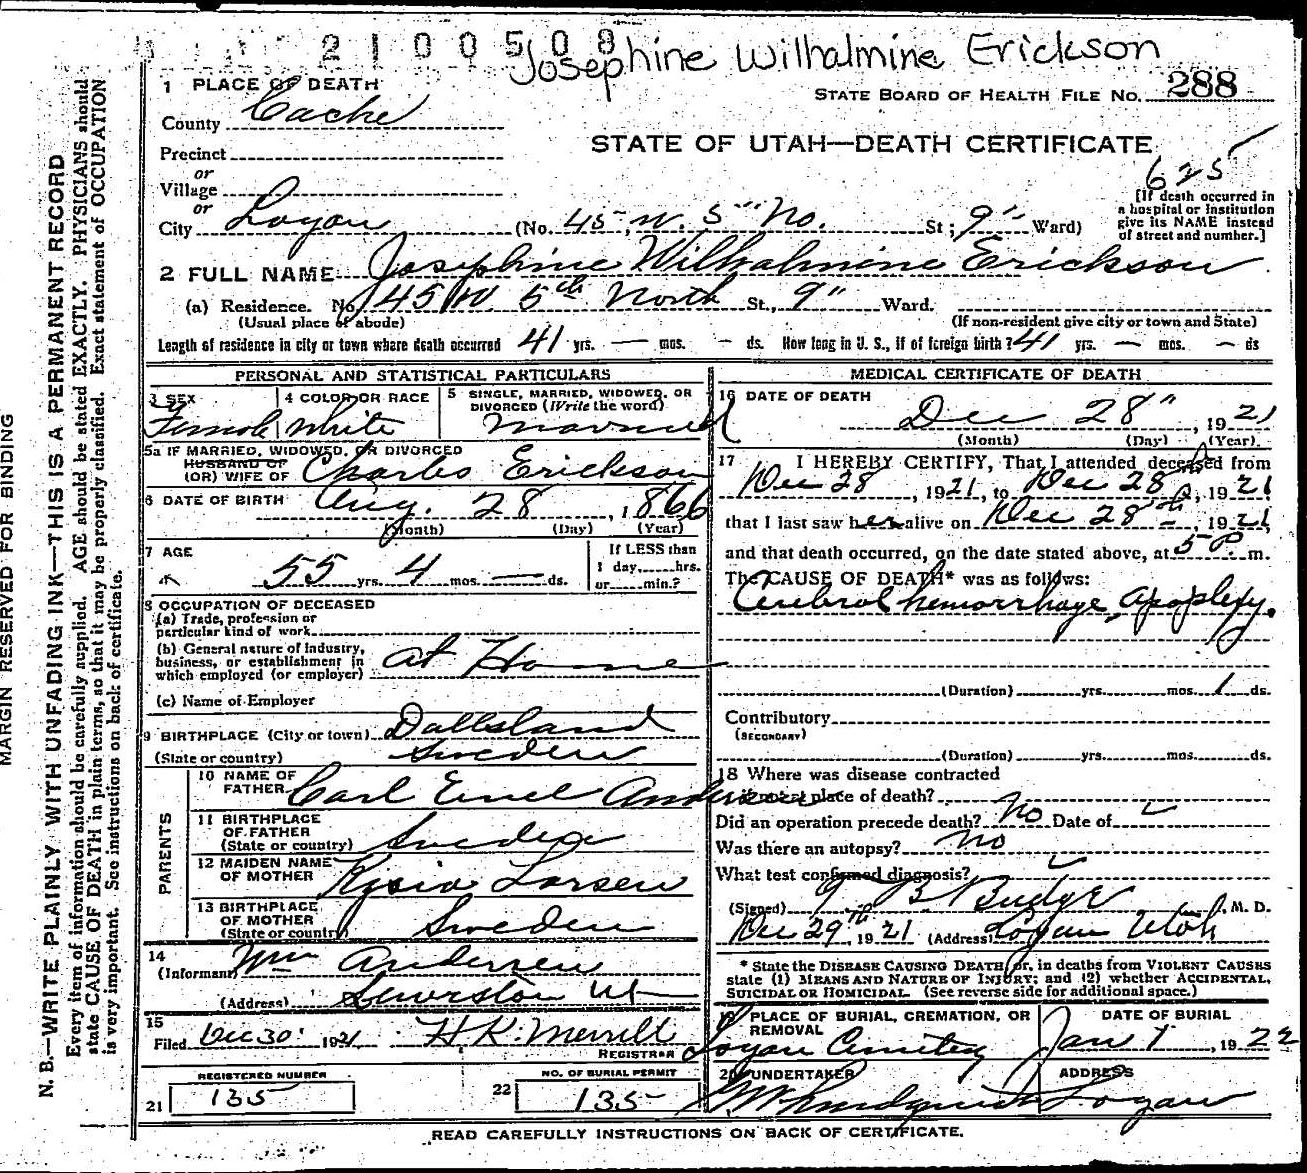 2100508
Josephine Wilhalmine Erickson
1 PLACE OF DEATH
STATE BOARD OF HEALTH FILE No. 288
County Cache
STATE OF UTAH—DEATH CERTIFICATE
Precinct
or
Village
625
or
City Logan (No. 45 W. 5th No. St; 9" Ward)
[If death occurred in
a hospital or institution
give its NAME instead
of street and number.]
2 FULL NAME Josephine Wilhalmine Erickson
(a) Residence. No. 145 W 5th North St., 9" Ward.
(Usual place of abode) (If non-resident give city or town and State)
Length of residence in city or town where death occurred 41 yrs. — mos. - ds. How long in U. S., if of foreign birth? 41 yrs. — mos. - ds
PERSONAL AND STATISTICAL PARTICULARS
3 SEX
Female
4 COLOR OR RACE
White
5 SINGLE, MARRIED, WIDOWED, OR
DIVORCED (Write the word)
Married
5a IF MARRIED, WIDOWED, OR DIVORCED
HUSBAND OF
(OR) WIFE OF Charles Erickson
6 DATE OF BIRTH Aug. 28, 1866
(Month) (Day) (Year)
7 AGE
55 yrs. 4 mos. — ds.
If LESS than
1 day, hrs.
or min.?
8 OCCUPATION OF DECEASED
(a) Trade, profession or
particular kind of work
(b) General nature of Industry,
business, or establishment in
which employed (or employer) at Home
(c) Name of Employer
9 BIRTHPLACE (City or town) Dallsland
(State or country) Sweden
PARENTS
10 NAME OF
FATHER Carl Emel Andersen
11 BIRTHPLACE
OF FATHER
(State or country) Sweden
12 MAIDEN NAME
OF MOTHER Larsen
13 BIRTHPLACE
OF MOTHER
(State or country) Sweden
14
(Informant) Wm Andersen
(Address) Lewiston Ut
15
Filed Dec 30 1921 H K Merrill
REGISTRAR
REGISTERED NUMBER
21 135
NO. OF BURIAL PERMIT
22 135
MEDICAL CERTIFICATE OF DEATH
16 DATE OF DEATH
Dec 28", 1921
(Month) (Day) (Year)
17 I HEREBY CERTIFY, That I attended deceased from
Dec 28, 1921, to Dec 28, 1921
that I last saw her alive on Dec 28th, 1921
and that death occurred, on the date stated above, at 5 P. m.
The CAUSE OF DEATH* was as follows:
Cerebral hemorrhage, apoplexy.
(Duration) yrs. mos. 1 ds.
Contributory
(SECONDARY)
(Duration) yrs. mos. ds.
18 Where was disease contracted
if not at place of death?
Did an operation precede death? No Date of
Was there an autopsy? No
What test confirmed diagnosis?
(Signed) B. Budge, M. D.
Dec 29th, 1921 (Address) Logan Utah
* State the DISEASE CAUSING DEATH, or, in deaths from VIOLENT CAUSES
state (1) MEANS AND NATURE OF INJURY; and (2) whether ACCIDENTAL,
SUICIDAL OR HOMICIDAL. (See reverse side for additional space.)
19 PLACE OF BURIAL, CREMATION, OR
REMOVAL
Logan Cemetery
DATE OF BURIAL
Jan 1, 1922
20 UNDERTAKER
ADDRESS
Logan
READ CAREFULLY INSTRUCTIONS ON BACK OF CERTIFICATE.
MARGIN RESERVED FOR BINDING
N. B.—WRITE PLAINLY WITH UNFADING INK—THIS IS A PERMANENT RECORD
Every item of information should be carefully supplied. AGE should be stated EXACTLY. PHYSICIANS should
state CAUSE OF DEATH in plain terms, so that it may be properly classified. Exact statement of OCCUPATION
is very important. See instructions on back of certificate.